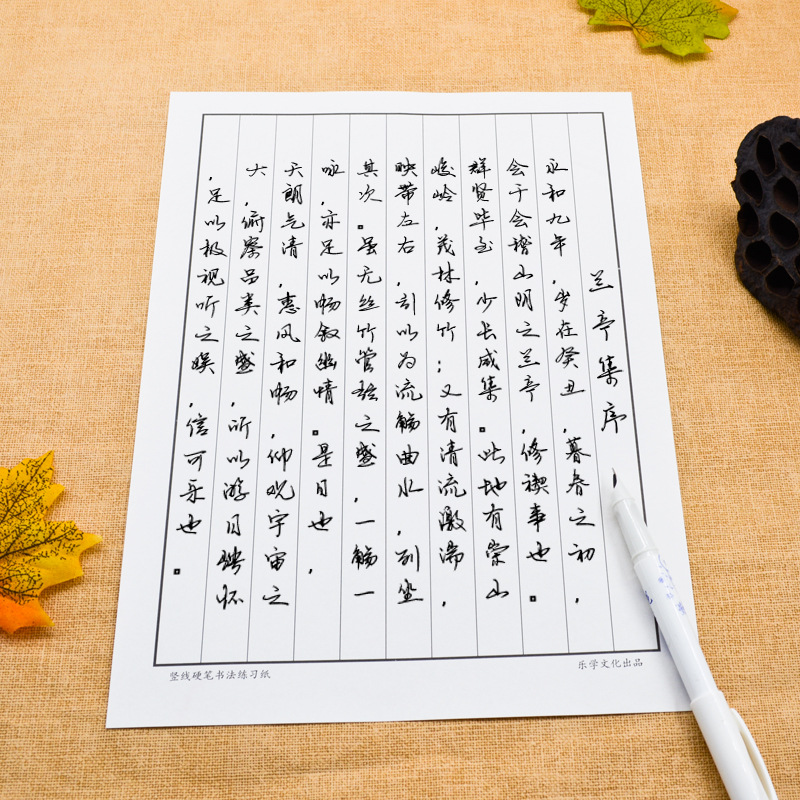 兰亭集序
永和九年，岁在癸丑，暮春之初，
会于会稽山明之兰亭，修禊事也。
群贤毕至，少长咸集。此地有崇山
峻岭，茂林修竹；又有清流激湍，
映带左右，引以为流觞曲水，列坐
其次。虽无丝竹管弦之盛，一觞一
咏，亦足以畅叙幽情。是日也，
天朗气清，惠风和畅，仰观宇宙之
大，俯察品类之盛，所以游目骋怀
，足以极视听之娱，信可乐也。
竖线硬笔书法练习纸
乐学文化出品